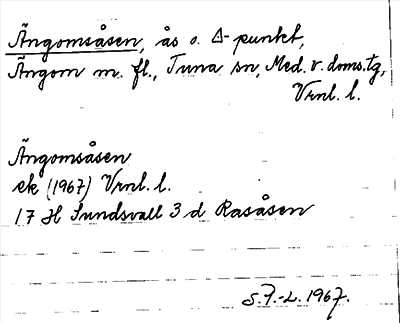 Ängomsåsen, ås o. Δ-punkt,
Ängom m. fl., Tuna sn, Med. v. doms.tg,
Vrnl. l.
Ängomsåsen
ek (1967) Vrnl. l.
17 H Sundsvall 3 d Rasåsen
S.F.-L. 1967.